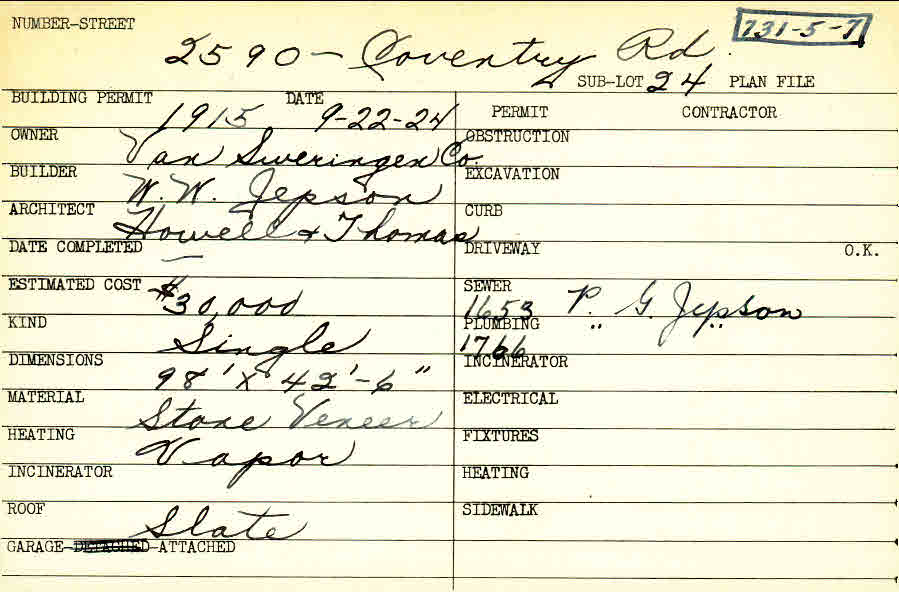 NUMBER-STREET 2590 - Coventry Rd. 731-5-7
SUB-LOT 24 PLAN FILE
BUILDING PERMIT 1915 DATE 9-22-24
OWNER Van Sweringen Co.
BUILDER W. W. Jepson
ARCHITECT Howell & Thomas
DATE COMPLETED —
ESTIMATED COST $30,000
KIND Single
DIMENSIONS 98' x 42'-6"
MATERIAL Stone Veneer
HEATING Vapor
INCINERATOR
ROOF Slate
GARAGE-DETACHED-ATTACHED
PERMIT CONTRACTOR
OBSTRUCTION
EXCAVATION
CURB
DRIVEWAY O.K.
SEWER 1653 P. G. Jepson
PLUMBING 1766 " "
INCINERATOR
ELECTRICAL
FIXTURES
HEATING
SIDEWALK